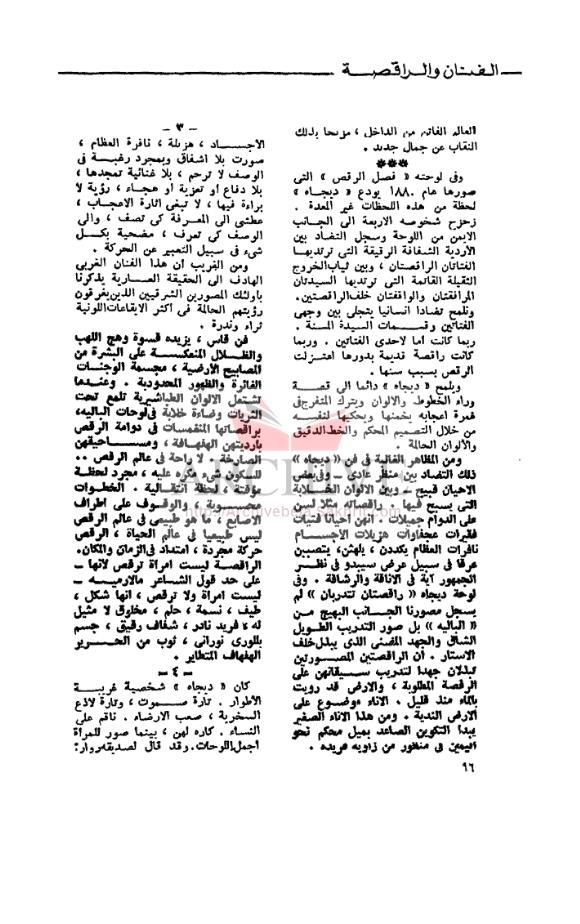 الفنان والراقصة
العالم الفاتن من الداخل ، مزيحا بذلك
النقاب عن جمال جديد .
***
وفى لوحته « فصل الرقص » التى
صورها عام ١٨٨٠ يودع « ديجاه »
لحظة من هذه اللحظات غير المعدة .
زحزح شخوصه الاربعة الى الجانب
الايمن من اللوحة وسجل التضاد بين
الأردية الشفافة الرقيقة التى ترتديها
الفتاتان الراقصتان ، وبين ثياب الخروج
الثقيلة القاتمة التى ترتديها السيدتان
المرافقتان والواقفتان خلف الراقصتين .
ونلمح تضادا انسانيا يتجلى بين وجهى
الفتاتين وقسمات السيدة المسنة .
ربما كانت اما لاحدى الفتاتين . وربما
كانت راقصة قديمة بدورها اعتزلت
الرقص بسبب سنها .
ويلمح « ديجاه » دائما الى قصة
وراء الخطوط والالوان ويترك المتفرج فى
غمرة اعجابه يخمنها ويحكيها لنفسه
من خلال التصميم المحكم والخط الدقيق
والألوان الحالمة .
ومن المظاهر الغالبة فى فن « ديجاه »
ذلك التضاد بين منظر عادى ــ وفى بعض
الاحيان قبيح ــ وبين الالوان الخلابة
التى يسبح فيها . راقصاته مثلا لسن
على الدوام جميلات . انهن احيانا فتيات
فقيرات عجفاوات هزيلات الأجسام
نافرات العظام يكددن ، يلهثن ، يتصببن
عرقا فى سبيل عرض سيبدو فى نظر
الجمهور آية فى الاناقة والرشاقة . وفى
لوحة ديجاه « راقصتان تتدربان » لم
يسجل مصورنا الجانب البهيج من
« الباليه » بل صور التدريب الطويل
الشاق والجهد المضنى الذى يبذل خلف
الاستار . أن الراقصتين المصورتين
تبذلان جهدا لتدريب سيقانهن على
الرقصة المطلوبة ، والارض قد رويت
بالماء منذ قليل . الاناء موضوع على
الارض الندية . ومن هذا الاناء الصغير
يبدأ التكوين الصاعد بميل محكم نحو
اليمين فى منظور من زاوية فريدة .
ــ ٣ ــ
الاجساد ، هزيلة ، نافرة العظام ،
صورت بلا اشفاق وبمجرد رغبة فى
الوصف لا ترحم ، بلا غنائية تمجدها ،
بلا دفاع او تعزية او هجاء ، رؤية لا
براءة فيها ، لا تبغى اثارة الاعجاب ،
عطشى الى المعرفة كى تصف ، والى
الوصف كى تعرف ، مضحية بكل
شىء فى سبيل التعبير عن الحركة .
ومن الغريب ان هذا الفنان الغربى
الهادف الى الحقيقة العارية يذكرنا
باولئك المصورين الشرقيين الذين يغرقون
رؤيتهم الحالمة فى أكثر الايقاعات اللونية
ثراء وندرة .
فن قاس ، يزيده قسوة وهج اللهب
والظلال المنعكسة على البشرة من
المصابيح الأرضية ، مجسمة الوجنات
الغائرة والظهور المحدودبة . وعندما
تشتعل الالوان الطباشيرية تلمع تحت
الثريات وضاءة خلابة فى لوحات الباليه ،
براقصاتها المنغمسات فى دوامة الرقص
بارديتهن الهفهافة ، ومساحيقهن
الصارخة . لا راحة فى عالم الرقص ..
للسكون شىء مكره عليه ، مجرد لحظة
مؤقتة ، لحظة انتقالية . الخطوات
محسوبة ، والوقوف على اطراف
الأصابع ، ما هو طبيعى فى عالم الرقص
ليس طبيعيا فى عالم الحياة ، الرقص
حركة مجردة ، امتداد فى الزمان والمكان .
الراقصة ليست امرأة ترقص لانها ــ
على حد قول الشاعر مالارميه ــ
ليست امرأة ولا ترقص ، انها شكل ،
طيف ، نسمة ، حلم ، مخلوق لا مثيل
له ، فريد نادر ، شفاف رقيق ، جسم
بللورى نورانى ، ثوب من الحرير
الهفهاف المتطاير .
ــ ٤ ــ
كان « ديجاه » شخصية غريبة
الأطوار . تارة صموت ، وتارة لاذع
السخرية ، صعب الارضاء . ناقم على
النساء . كاره لهن ، بينما صور للمرأة
اجمل اللوحات . وقد قال لصديقه مروار :
٩٦
ARCHIVE
http://Archivebeta.Sakhrit.com